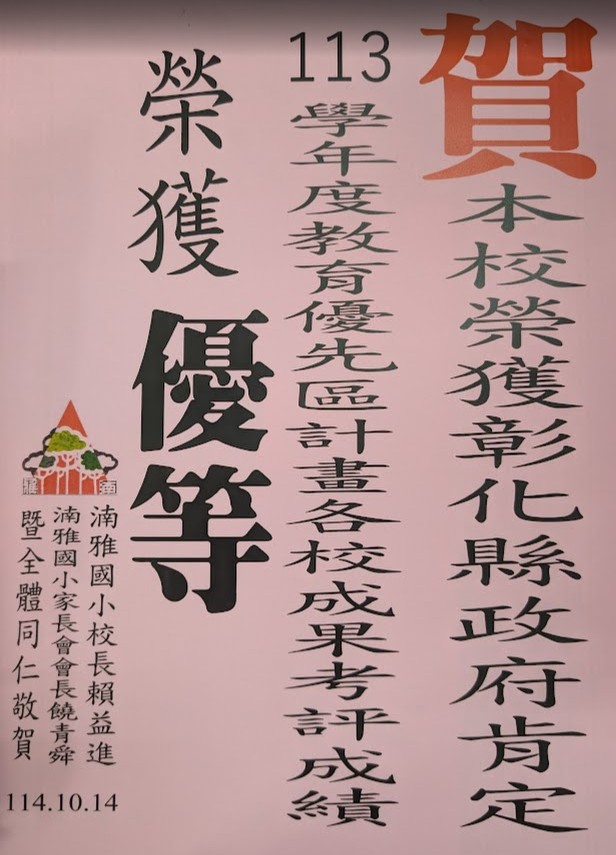 賀
本校榮獲彰化縣政府肯定
113
學年度教育優先區計畫各校成果考評成績
榮獲優等
湳雅
湳雅國小校長賴益進
湳雅國小家長會會長饒青舜
暨全體同仁敬賀
114.10.14